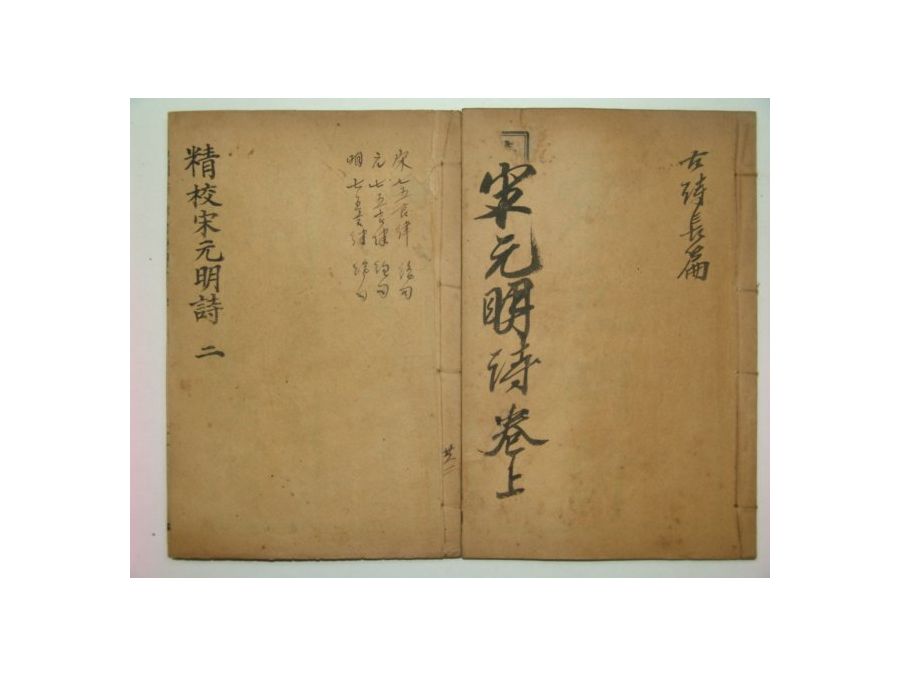 古詩長篇
宋元明詩卷上
宋 七五言律 絶句
元 七五言律 絶句
明 七五言律 絶句
精校宋元明詩 二